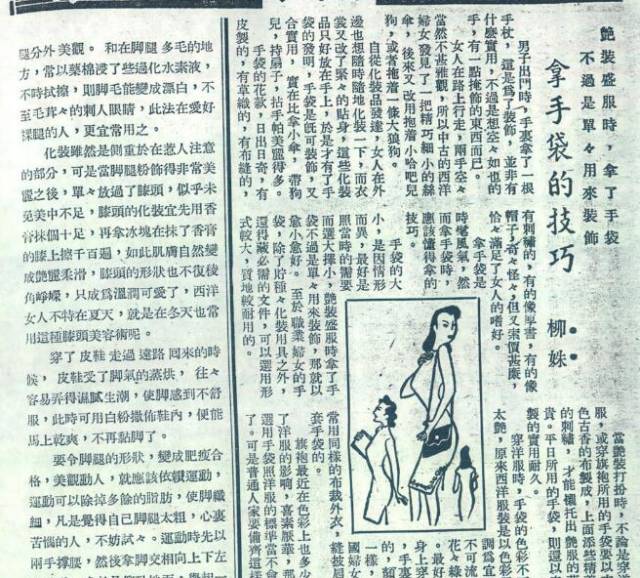 艷裝盛服時,拿了手袋
不過是單々用來裝飾
拿手袋的技巧
柳妹
男子出門時,手裏拿了一根
手杖,這是爲了裝飾,並非有
什麼實用,不過是想空々如也的
手,有一點掩飾的東西而已。
女人在路上行走,兩手空々
當然不甚雅觀,所以中古的西洋
婦女發見了一把精巧細小的絲
傘,後來又改用抱着小哈吧兒
狗,或者拖着一條大狼狗。
自從化裝品發達,女人在外
邊也想隨時隨地化裝一下,而衣
裳又改了緊々的貼身,這些化裝
品只好放在手上,於是才有了手
袋的發明,手袋是旣可裝飾,又
合實用,實在比拿小傘,帶狗
兒,持扇子,拈手帕美麗得多。
手袋的花欵,日出日奇,有
皮製的,有草織的,有布縫的,
有刺繡的,有的像厚書,有的像
帽子,奇々怪々,但又索價甚廉,
恰々滿足了女人的嗜好。
拿手袋是
時髦風氣,然
而拿手袋時,
應該懂得拿的
技巧。
手袋的大
小,是因情形
而異,最好是
照當時的需要
而選大擇小,艷裝盛服時拿了手
袋不過是單々用來裝飾,那就以
愈小愈好。至於職業婦女的手
袋,除了貯種々化裝用具之外,
還得藏必需的文件,可以選用形
式較大,質地較耐用的。
當艷裝打扮時,不論是穿
服,或穿旗袍所用的手袋要以
色古香的布製成,上面添些精
的刺繡,才能襯托出艷服的
貴。平日所用的手袋,則還以
製的實用耐久。
穿洋服時,手袋的色彩不
太艷,原來西洋服裝是以色彩
調爲宜
不可流
花々綠
。最好
身上穿
,手裏
的,顏
一樣,
國婦女
常用同樣的布裁外衣,縫披肩
套手袋的。
旗袍最近在色彩上也多少
了洋服的影响,喜素厭華,那
選用手袋照洋服的標準當不會
了。可是普通人家要備齊這樣
腿分外美觀。和在脚腿多毛的地
方,常以藥棉浸了些過化水素液,
不時拭擦,則脚毛能變成漂白,不
至毛茸々的刺人眼睛,此法在愛好
祼腿的人,更宜常用之。
化裝雖然是側重於在惹人注意
的部分,可是當脚腿粉飾得非常美
麗之後,單々放過了膝頭,似乎未
免美中不足,膝頭的化裝宜先用香
膏抹個十足,再拿冰塊在抹了香膏
的膝上擦千百遍,如此肌膚自然變
成艷麗柔滑,膝頭的形狀也不復後
角崢嶸,只成爲溫潤可愛了,西洋
女人不特在夏天,就是在冬天也常
用這種膝頭美容術呢。
穿了皮鞋走過遠路回來的時
候,皮鞋受了脚氣的蒸烘,往々
容易弄得濕膩生潮,使脚感到不舒
服,此時可用白粉撒佈鞋內,便能
馬上乾爽,不再黏脚了。
要令脚腿的形狀,變成肥瘦合
格,美觀動人,就應該依賴運動,
運動可以除掉多餘的脂肪,使脚纖
細,凡是覺得自己脚腿太粗,心裏
苦惱的人,不妨試々。運動時先以
兩手撐腰,然後拿脚交相向上下左